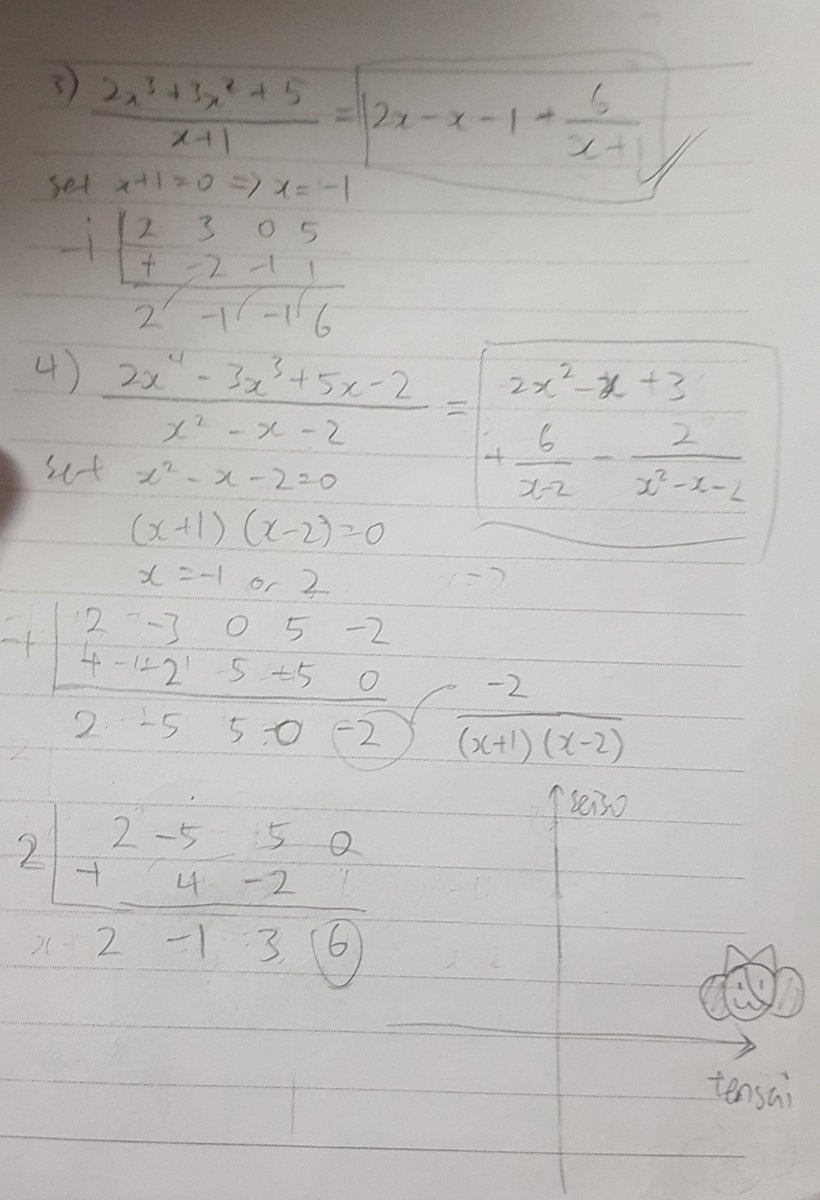 3) (2x³+3x²+5)/(x+1) = 2x-x-1+6/(x+1)
set x+1=0 => x=-1
-1 | 2 3 0 5
+ -2 -1 1
2 -1 -1 6
4) (2x⁴-3x³+5x-2)/(x²-x-2) = 2x²-x+3
+ 6/(x-2) - 2/(x²-x-2)
set x²-x-2=0
(x+1)(x-2)=0
x=-1 or 2
-1 | 2 -3 0 5 -2
+ -2 5 -5 0
2 -5 5 0 -2
-2/((x+1)(x-2))
seiso
2 | 2 -5 5 0
+ 4 -2
2 -1 3 6
tensai